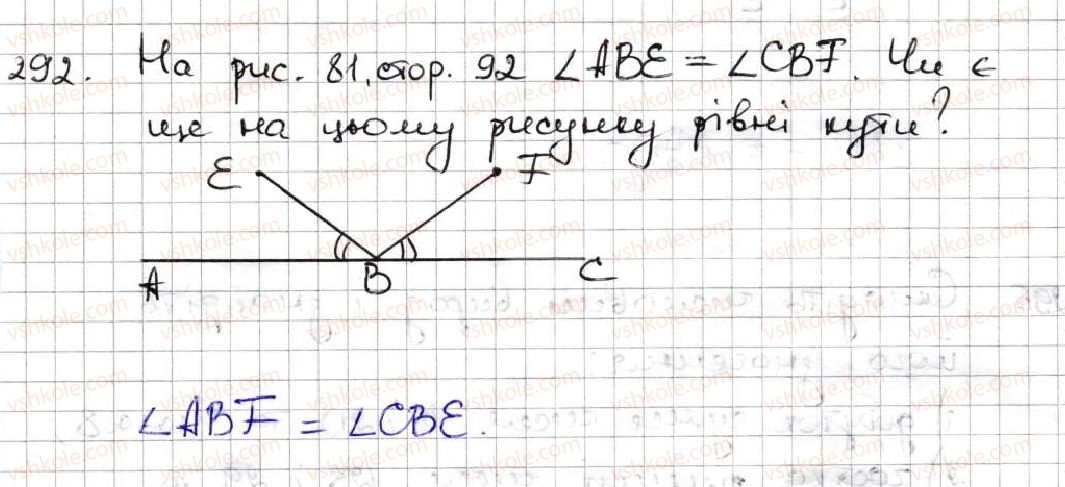 292. На рис. 81. стор. 92 ∠ABE = ∠CBF. Чи є
ще на цьому рисунку рівні кути?
E F
A B C
∠ABF = ∠CBE.
vshkole.com